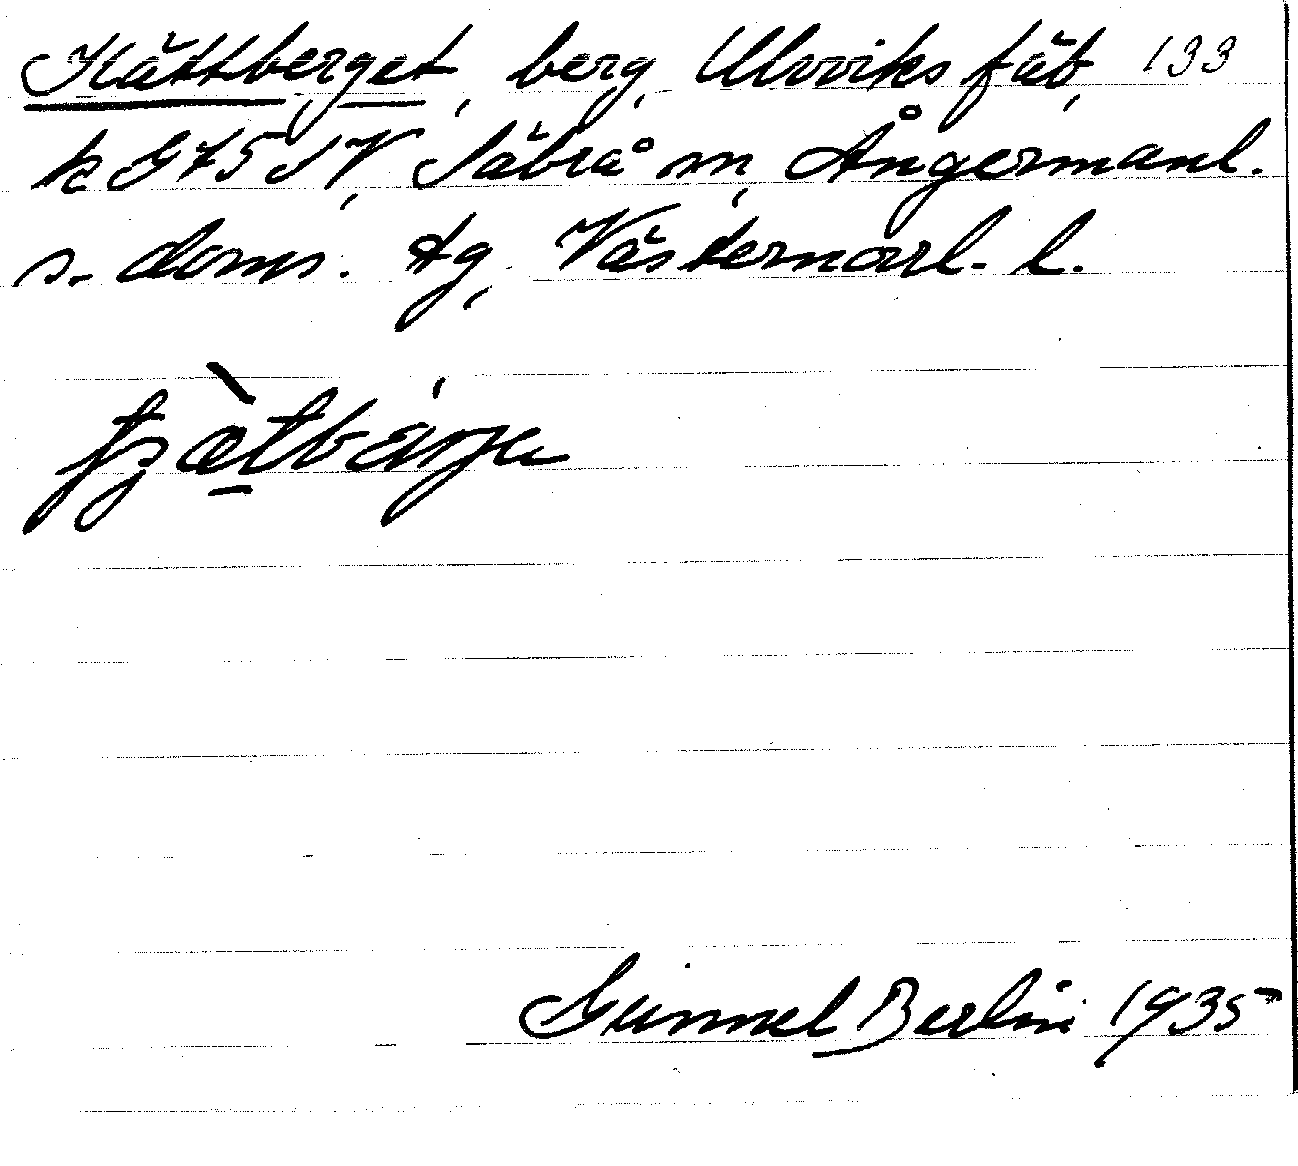 Kättberget, berg, Ulvviks fäb, 133
k G 75 SV, Säbrå sn, Ångermanl.
s. doms. tg, Västernorrl. l.
Gunnel Berlin 1935